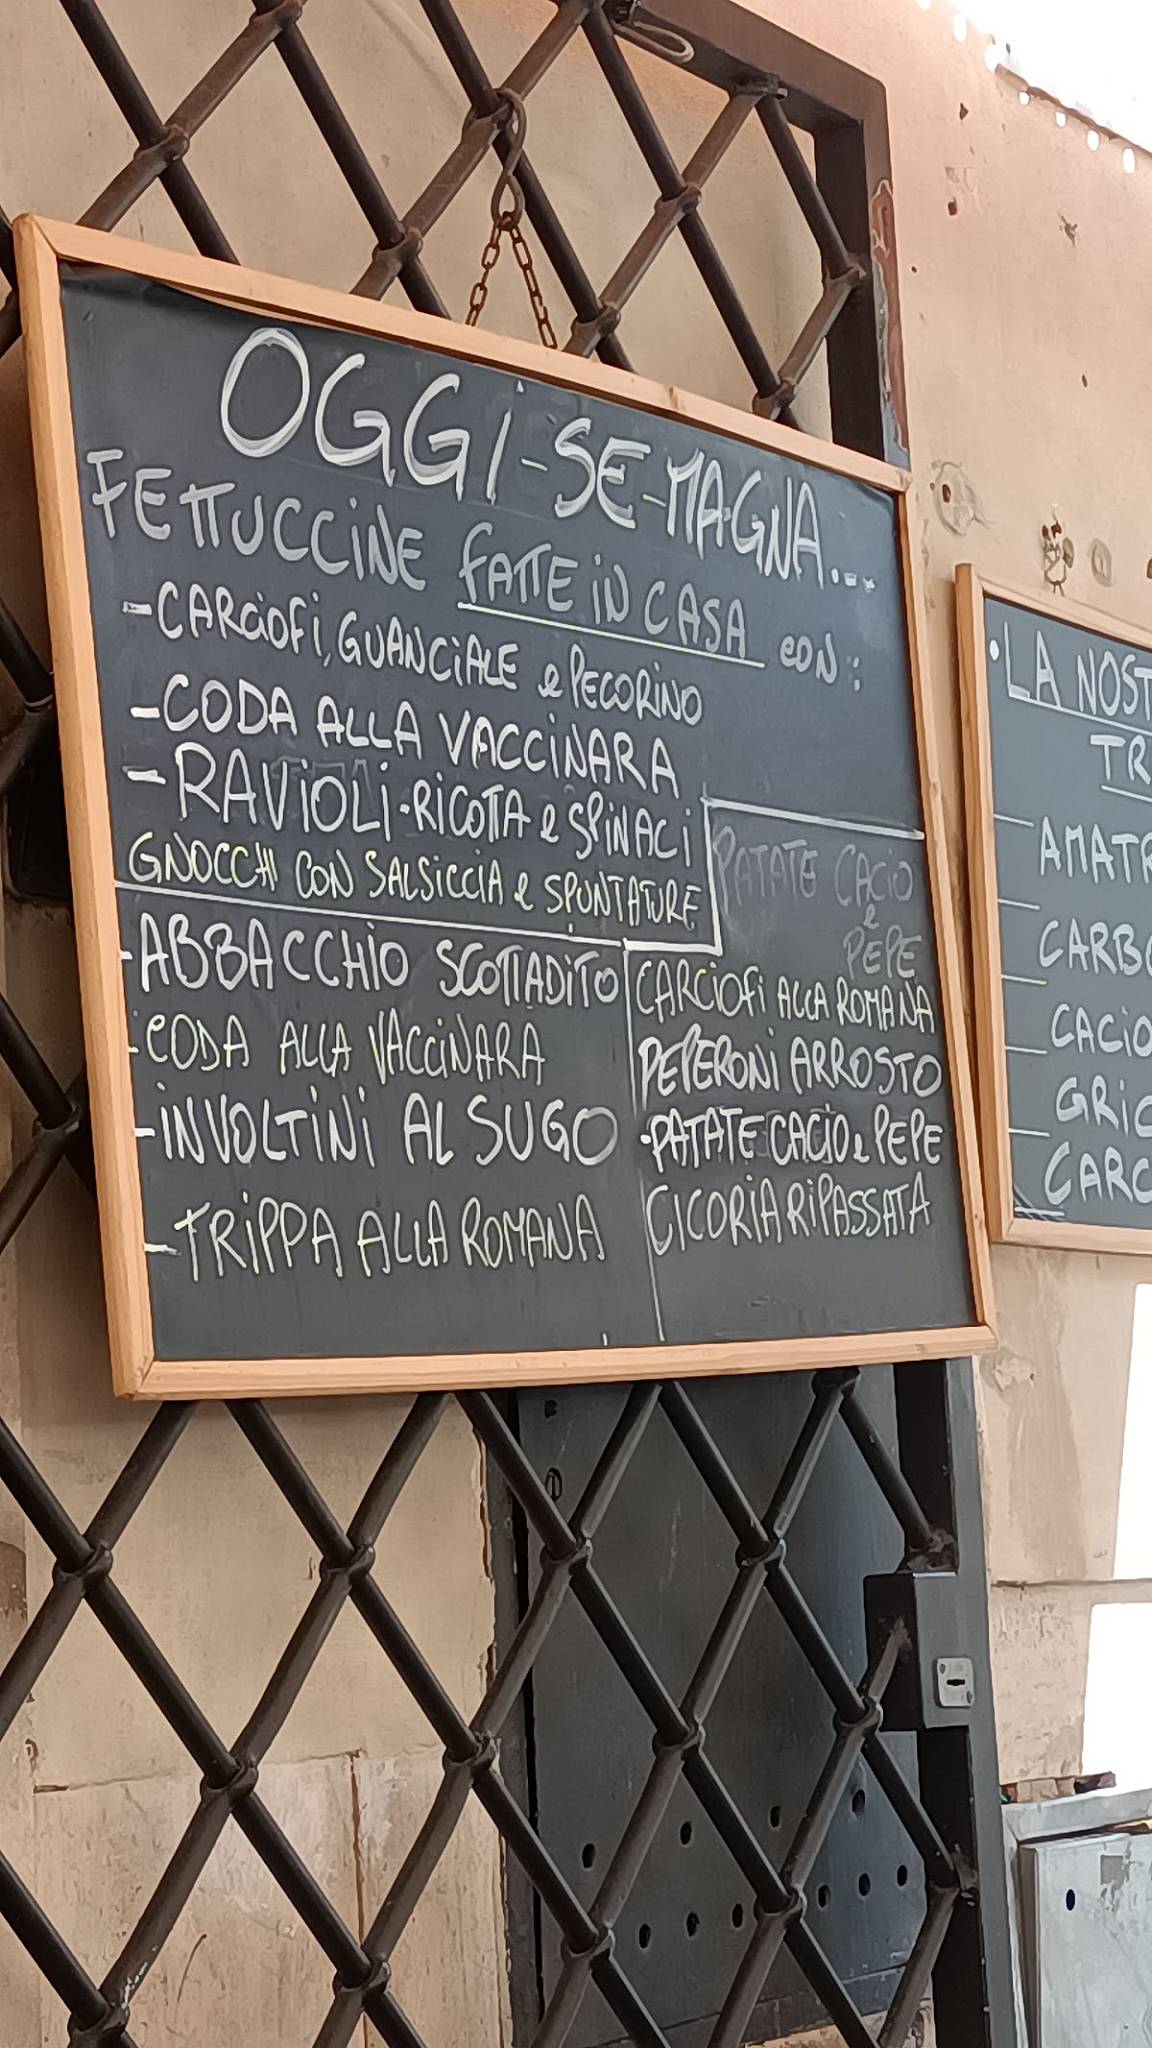 OGGi-SE-MAGNA...
FETTUCCiNE FATTE iN CASA CON:
-CARCiOFi, GUANCiALE e PECORiNO
-CODA ALLA VACCiNARA
-RAViOLi-RiCOTTA e SPiNACi
GNOCCHi CON SALSiCCiA e SPUNTATURE
-ABBACCHiO SCOTTADiTO
-CODA ALLA VACCiNARA
-iNVOLTiNi AL SUGO
-TRiPPA ALLA ROMANA
PATATE CACiO
e
PEPE
CARCiOFi ALLA ROMANA
PEPERONi ARROSTO
·PATATE CACiO e PEPE
CiCORiA RiPASSATA
·LA NOST
TR
AMATR
CARBO
CACiO
GRiC
CARC